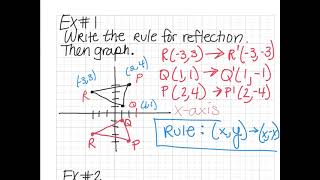 EX#1
Write the Rule for reflection.
Then graph.
R(-3,3) → R'(-3,-3)
Q(1,1) → Q'(1,-1)
P(2,4) → P'(2,-4)
(-3,3)
(2,4)
P
R
Q (1,1)
x-axis
Q
R
P
Rule: (x,y) → (x,-y)
EX#2